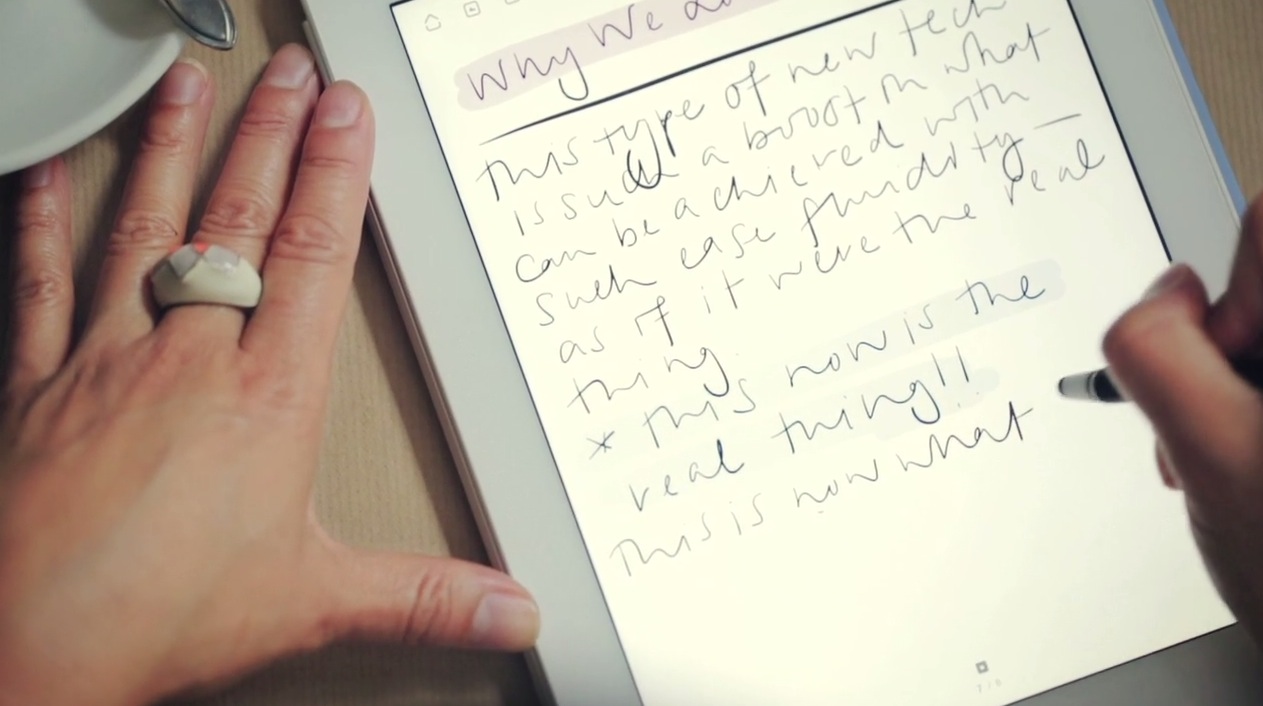 Why We
This type of new tech
is such a boost in what
can be achieved with
such ease fluidity —
as if it were the real
thing.
* This now is the
real thing!!
This is now what